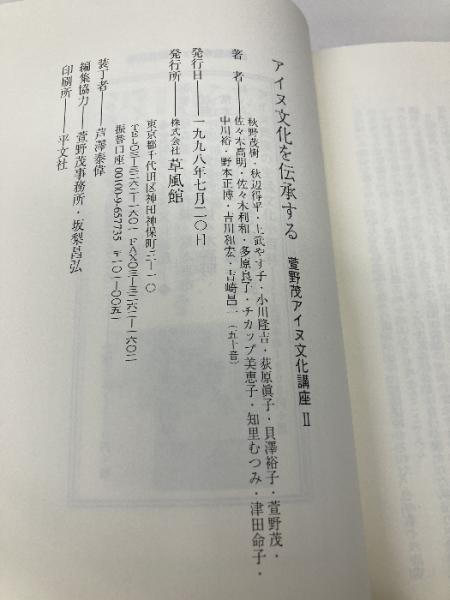 アイヌ文化を伝承する 萱野茂アイヌ文化講座Ⅱ
著者──秋野茂樹・秋辺得平・上武やす子・小川隆吉・荻原眞子・貝澤裕子・萱野茂・
佐々木高明・佐々木利和・多原良子・チカップ美恵子・知里むつみ・津田命子・
中川裕・野本正博・吉川和宏・吉崎昌一(五十音)
発行日──一九九八年七月二〇日
発行所──株式会社 草風館
東京都千代田区神田神保町三─一〇
TEL〇三─三二六二─一六〇一 FAX〇三─三二六二─一六〇二
振替口座00100-9-657735 〒一〇一─〇〇五一
装丁者──芦澤泰偉
編集協力──萱野茂事務所・坂梨昌弘
印刷所──平文社